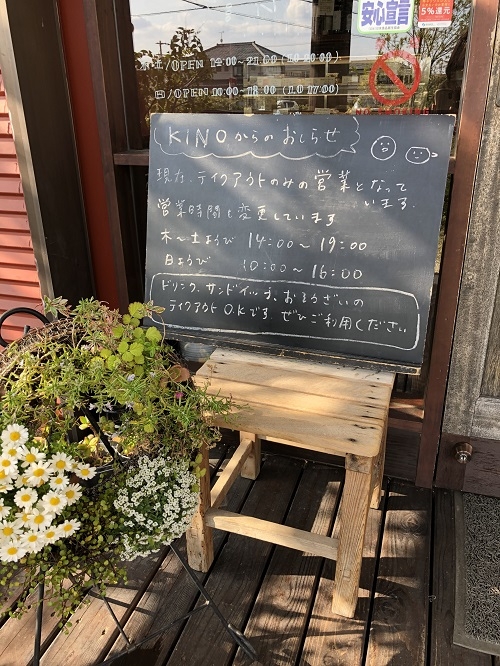 安心宣言
5%還元
木-土/OPEN 14:00-21:00 (LO 20:00)
日/OPEN 10:00-18:00 (LO 17:00)
KINOからのおしらせ
現在、テイクアウトのみの営業となって
います。
営業時間も変更しています
木〜土ようび 14:00〜19:00
日ようび 10:00〜16:00
ドリンク、サンドイッチ、おそうざいの
テイクアウト O.Kです。ぜひご利用ください